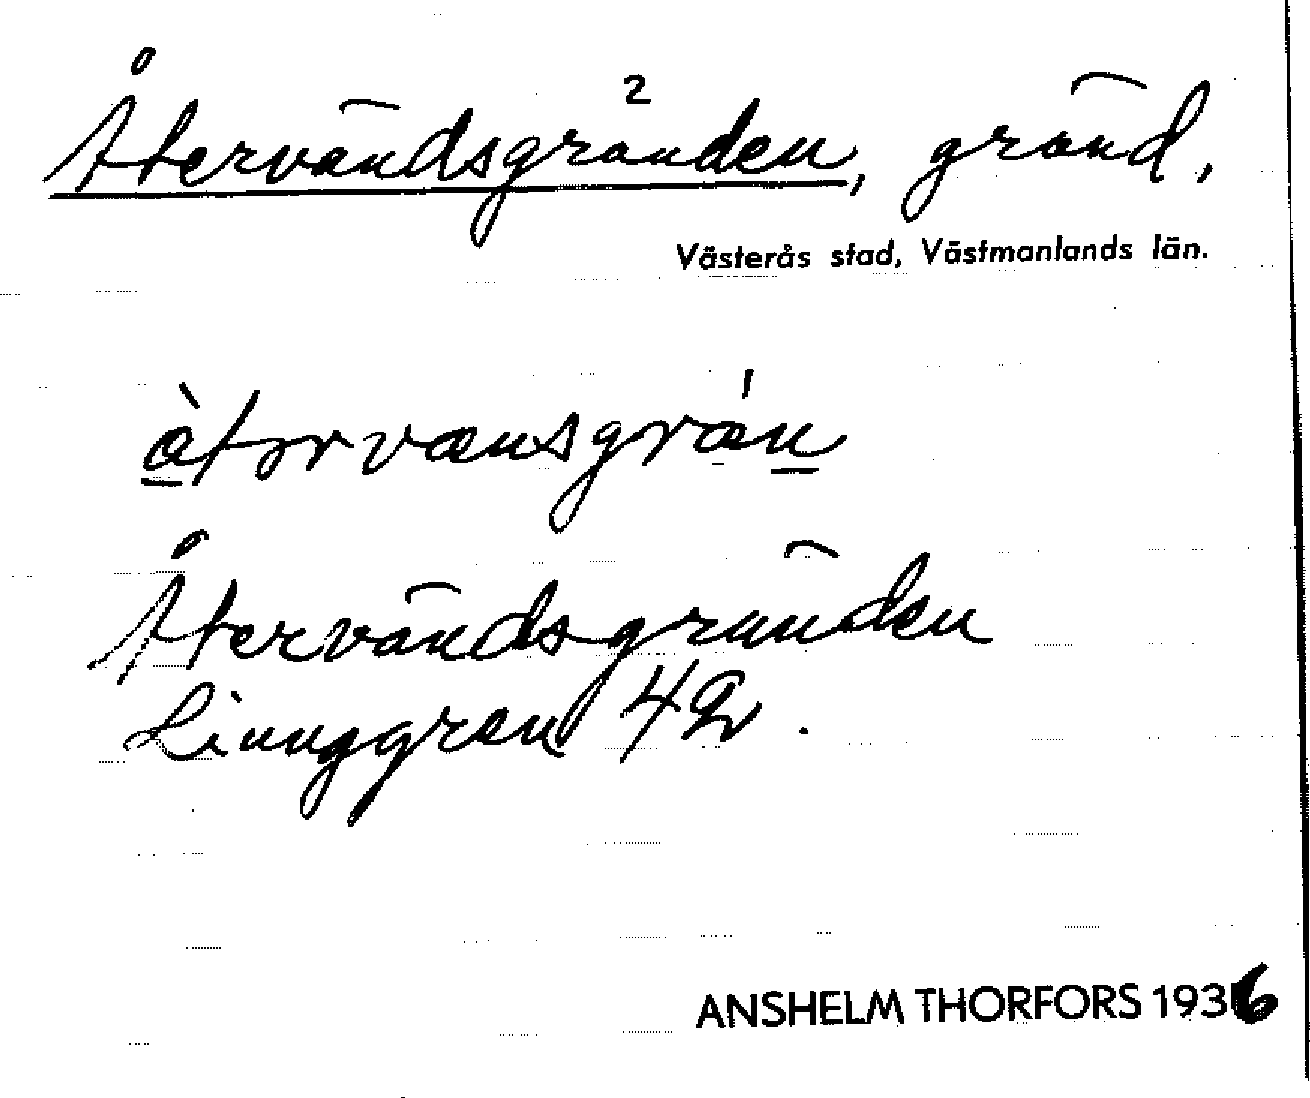 Återvändsgränden, gränd,
2
Västerås stad, Västmanlands län.
å̀tərvænsgrǽn
Återvändsgränden
Ljunggren 42.
ANSHELM THORFORS 1936